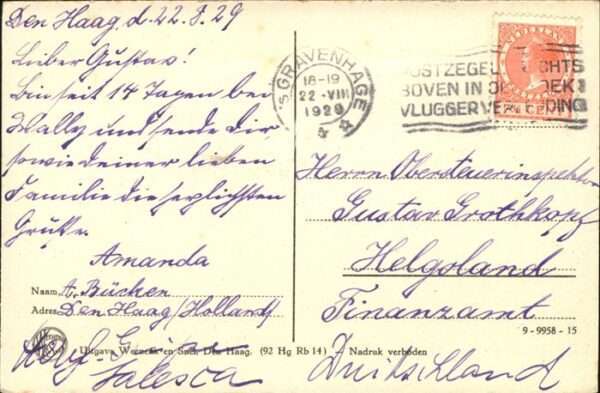 Den Haag, d. 22.8.29
Lieber Gustav!
Bin seit 14 Tagen bei
Wally und sende Dir,
sowie deiner lieben
Familie die herzlichsten
Grüße.
Amanda
Naam A. Bücken
Adres Den Haag/Holland
Uitgave Weenenk en Snel, Den Haag. (92 Hg Rb 14) - Nadruk verboden
'S GRAVENHAGE
18-19
22 · VIII
1929
POSTZEGEL RECHTS
BOVEN IN DE HOEK
VLUGGER VERZENDING
NEDERLAND
Herrn Obersteuerinspektor
Gustav Grothkopf
Helgoland
Finanzamt
9-9958-15
Duitschland